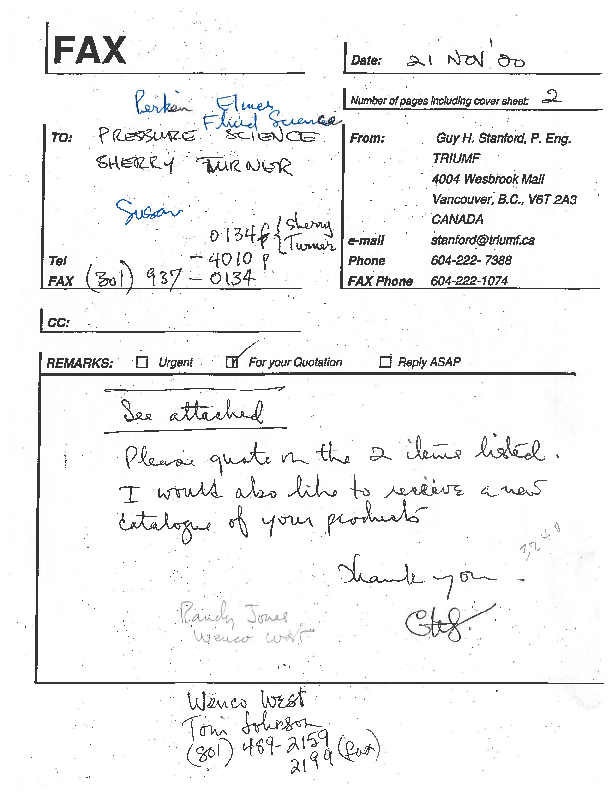 FAX
Date: 21 NOV '00
Number of pages including cover sheet: 2
Perkin Elmer
Fluid Science
TO: PRESSURE SCIENCE
SHERRY TURNER
Susan
0134 f { Sherry
Turner
Tel - 4010 p
FAX (301) 937 - 0134
From: Guy H. Stanford, P. Eng.
TRIUMF
4004 Wesbrook Mall
Vancouver, B.C., V6T 2A3
CANADA
e-mail stanford@triumf.ca
Phone 604-222- 7388
FAX Phone 604-222-1074
CC:
REMARKS: Urgent For your Quotation Reply ASAP
See attached
Please quote on the 2 items listed.
I would also like to receive a new
catalogue of your products
3240
Thank you.
GHS.
Randy Jones
Wenco West
Wenco West
Tom Johnson
(801) 489-2159
2199 (fax)